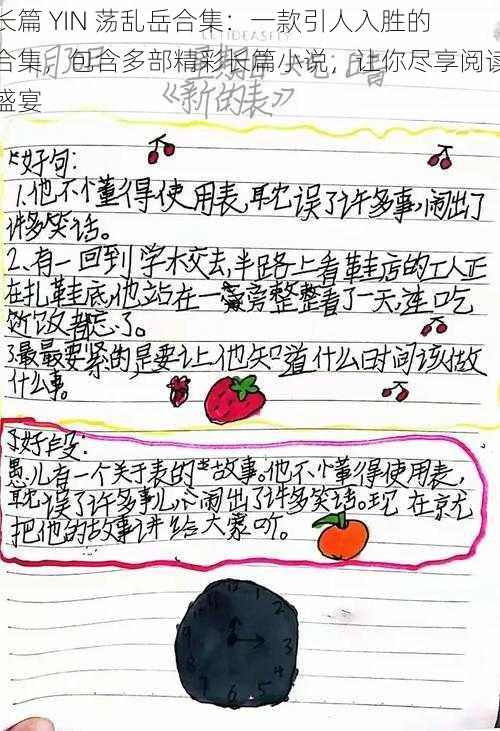 长篇 YIN 荡乱岳合集：一款引人入胜的
合集，包含多部精彩长篇小说，让你尽享阅读
盛宴
《新的表》
好句：
1.他不懂得使用表,耽误了许多事,闹出了
许多笑话。
2、有一回到学校去,半路上看鞋店的工人正
在扎鞋底,他站在一旁整整看了一天,连吃
饭都忘了。
3最最要紧的是要让他知道什么时间该做
什么事。
好段：
愚儿有一个关于表的故事。他不懂得使用表,
耽误了许多事儿,闹出了许多笑话。现在京尤
把他的故事讲给大家听。
12
1
2
3
4
5
6
7
8
9